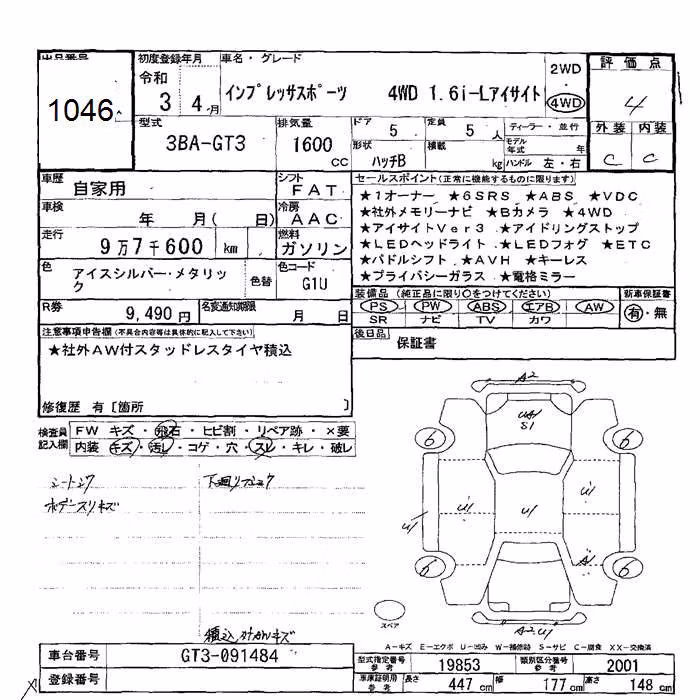 出品番号
1046
初度登録年月
令和
3 4 月
車名・グレード
インプレッサスポーツ 4WD 1.6i-Lアイサイト
2WD
4WD
評価点
4
外装 内装
C C
型式
3BA-GT3
排気量
1600 cc
ドア 5
定員 5 人
ディーラー・並行
形状
ハッチB
積載 kg
モデル年式 年
ハンドル 左・右
車歴
自家用
シフト
FAT
車検
年 月( 日)
冷房
AAC
走行
9万7千600 km
燃料
ガソリン
色
アイスシルバー・メタリック
色替
色コード
G1U
R券
9,490円
名変通知期限
月 日
セールスポイント(正常に機能するものに限ります)
★1オーナー ★6SRS ★ABS ★VDC
★社外メモリーナビ ★Bカメラ ★4WD
★アイサイトVer3 ★アイドリングストップ
★LEDヘッドライト ★LEDフォグ ★ETC
★パドルシフト ★AVH ★キーレス
★プライバシーガラス ★電格ミラー
装備品(純正品に限り○をつけてください)
PS PW ABS エアB AW
SR ナビ TV カワ
新車保証書
有・無
後日品
保証書
注意事項申告欄(不具合内容等は具体的に記入して下さい)
★社外AW付スタッドレスタイヤ積込
修復歴 有[箇所 ]
検査員記入欄
FW キズ・飛石・ヒビ割・リペア跡・×要
内装 キズ・汚レ・コゲ・穴・スレ・キレ・破レ
下廻リ
キズ
積込
キズ
A2
S1
6
6
6
6
U1
U1
U1
U1
A1
A2.U1
スペア
A-キズ E-エクボ U-凹み W-補修跡 S-サビ C-腐食 XX-交換済
車台番号
GT3-091484
登録番号
型式指定番号 参考
19853
類別区分番号 参考
2001
車庫証明用 参考
長さ 447 cm
幅 177 cm
高さ 148 cm